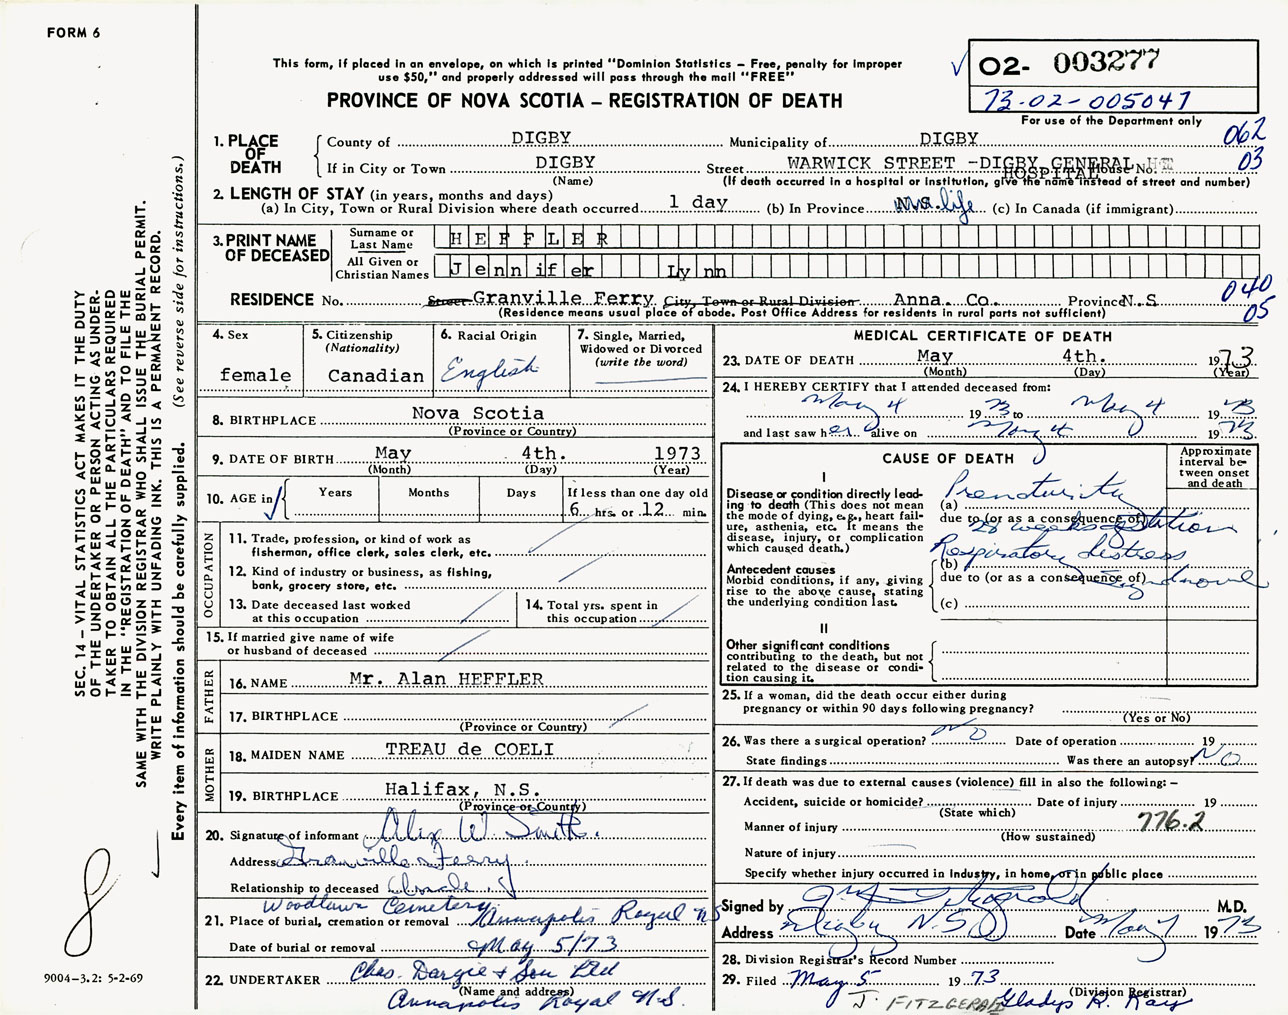 FORM 6
This form, if placed in an envelope, on which is printed "Dominion Statistics – Free, penalty for improper
use $50," and properly addressed will pass through the mail "FREE"
PROVINCE OF NOVA SCOTIA – REGISTRATION OF DEATH
02- 003277
73-02-005047
For use of the Department only
062
03
1. PLACE OF DEATH
County of DIGBY Municipality of DIGBY
If in City or Town DIGBY Street WARWICK STREET -DIGBY GENERAL House No.
HOSPITAL
(Name) (If death occurred in a hospital or institution, give the name instead of street and number)
2. LENGTH OF STAY (in years, months and days)
(a) In City, Town or Rural Division where death occurred 1 day (b) In Province life (c) In Canada (if immigrant)
3. PRINT NAME OF DECEASED
Surname or Last Name HEFFLER
All Given or Christian Names Jennifer Lynn
RESIDENCE No. Street Granville Ferry City, Town or Rural Division Anna. Co. Province N.S
(Residence means usual place of abode. Post Office Address for residents in rural parts not sufficient)
040
05
4. Sex
female
5. Citizenship
(Nationality)
Canadian
6. Racial Origin
English
7. Single, Married,
Widowed or Divorced
(write the word)
8. BIRTHPLACE Nova Scotia
(Province or Country)
9. DATE OF BIRTH May 4th. 1973
(Month) (Day) (Year)
10. AGE in
Years Months Days If less than one day old
6 hrs. or 12 min.
OCCUPATION
11. Trade, profession, or kind of work as
fisherman, office clerk, sales clerk, etc.
12. Kind of industry or business, as fishing,
bank, grocery store, etc.
13. Date deceased last worked
at this occupation
14. Total yrs. spent in
this occupation
15. If married give name of wife
or husband of deceased
FATHER
16. NAME Mr. Alan HEFFLER
17. BIRTHPLACE
(Province or Country)
MOTHER
18. MAIDEN NAME TREAU de COELI
19. BIRTHPLACE Halifax, N.S.
(Province or Country)
20. Signature of informant Alex W. Smith.
Address Granville Ferry
Relationship to deceased Uncle.
Woodlawn Cemetery
21. Place of burial, cremation or removal Annapolis Royal NS
Date of burial or removal May 5/73
22. UNDERTAKER Chas. Dargie & Son Ltd
(Name and address)
Annapolis Royal N.S.
MEDICAL CERTIFICATE OF DEATH
23. DATE OF DEATH May 4th. 1973
(Month) (Day) (Year)
24. I HEREBY CERTIFY that I attended deceased from:
May 4 1973 to May 4 1973
and last saw her alive on May 4 1973
CAUSE OF DEATH
Approximate
interval be-
tween onset
and death
I
Disease or condition directly lead-
ing to death (This does not mean
the mode of dying, e.g., heart fail-
ure, asthenia, etc. It means the
disease, injury, or complication
which caused death.)
(a) Prematurity
due to (or as a consequence of)
weeks gestation
Respiratory distress
Antecedent causes
Morbid conditions, if any, giving
rise to the above cause, stating
the underlying condition last.
(b)
due to (or as a consequence of) Syndrome
(c)
II
Other significant conditions
contributing to the death, but not
related to the disease or condi-
tion causing it.
25. If a woman, did the death occur either during
pregnancy or within 90 days following pregnancy?
(Yes or No)
26. Was there a surgical operation? NO Date of operation 19
State findings Was there an autopsy? NO
27. If death was due to external causes (violence) fill in also the following: –
Accident, suicide or homicide? Date of injury 19
(State which)
Manner of injury 776.2
(How sustained)
Nature of injury
Specify whether injury occurred in industry, in home, or in public place
Signed by Fitzgerald M.D.
Address Digby N.S. Date May 1973
28. Division Registrar's Record Number
29. Filed May 5 1973
(Division Registrar)
J. FITZGERALD Gladys H. Kay
SEC. 14 – VITAL STATISTICS ACT MAKES IT THE DUTY
OF THE UNDERTAKER OR PERSON ACTING AS UNDER-
TAKER TO OBTAIN ALL THE PARTICULARS REQUIRED
IN THE "REGISTRATION OF DEATH" AND TO FILE THE
SAME WITH THE DIVISION REGISTRAR WHO SHALL ISSUE THE BURIAL PERMIT.
WRITE PLAINLY WITH UNFADING INK. THIS IS A PERMANENT RECORD.
Every item of information should be carefully supplied. (See reverse side for instructions.)
8
9004–3.2: 5-2-69